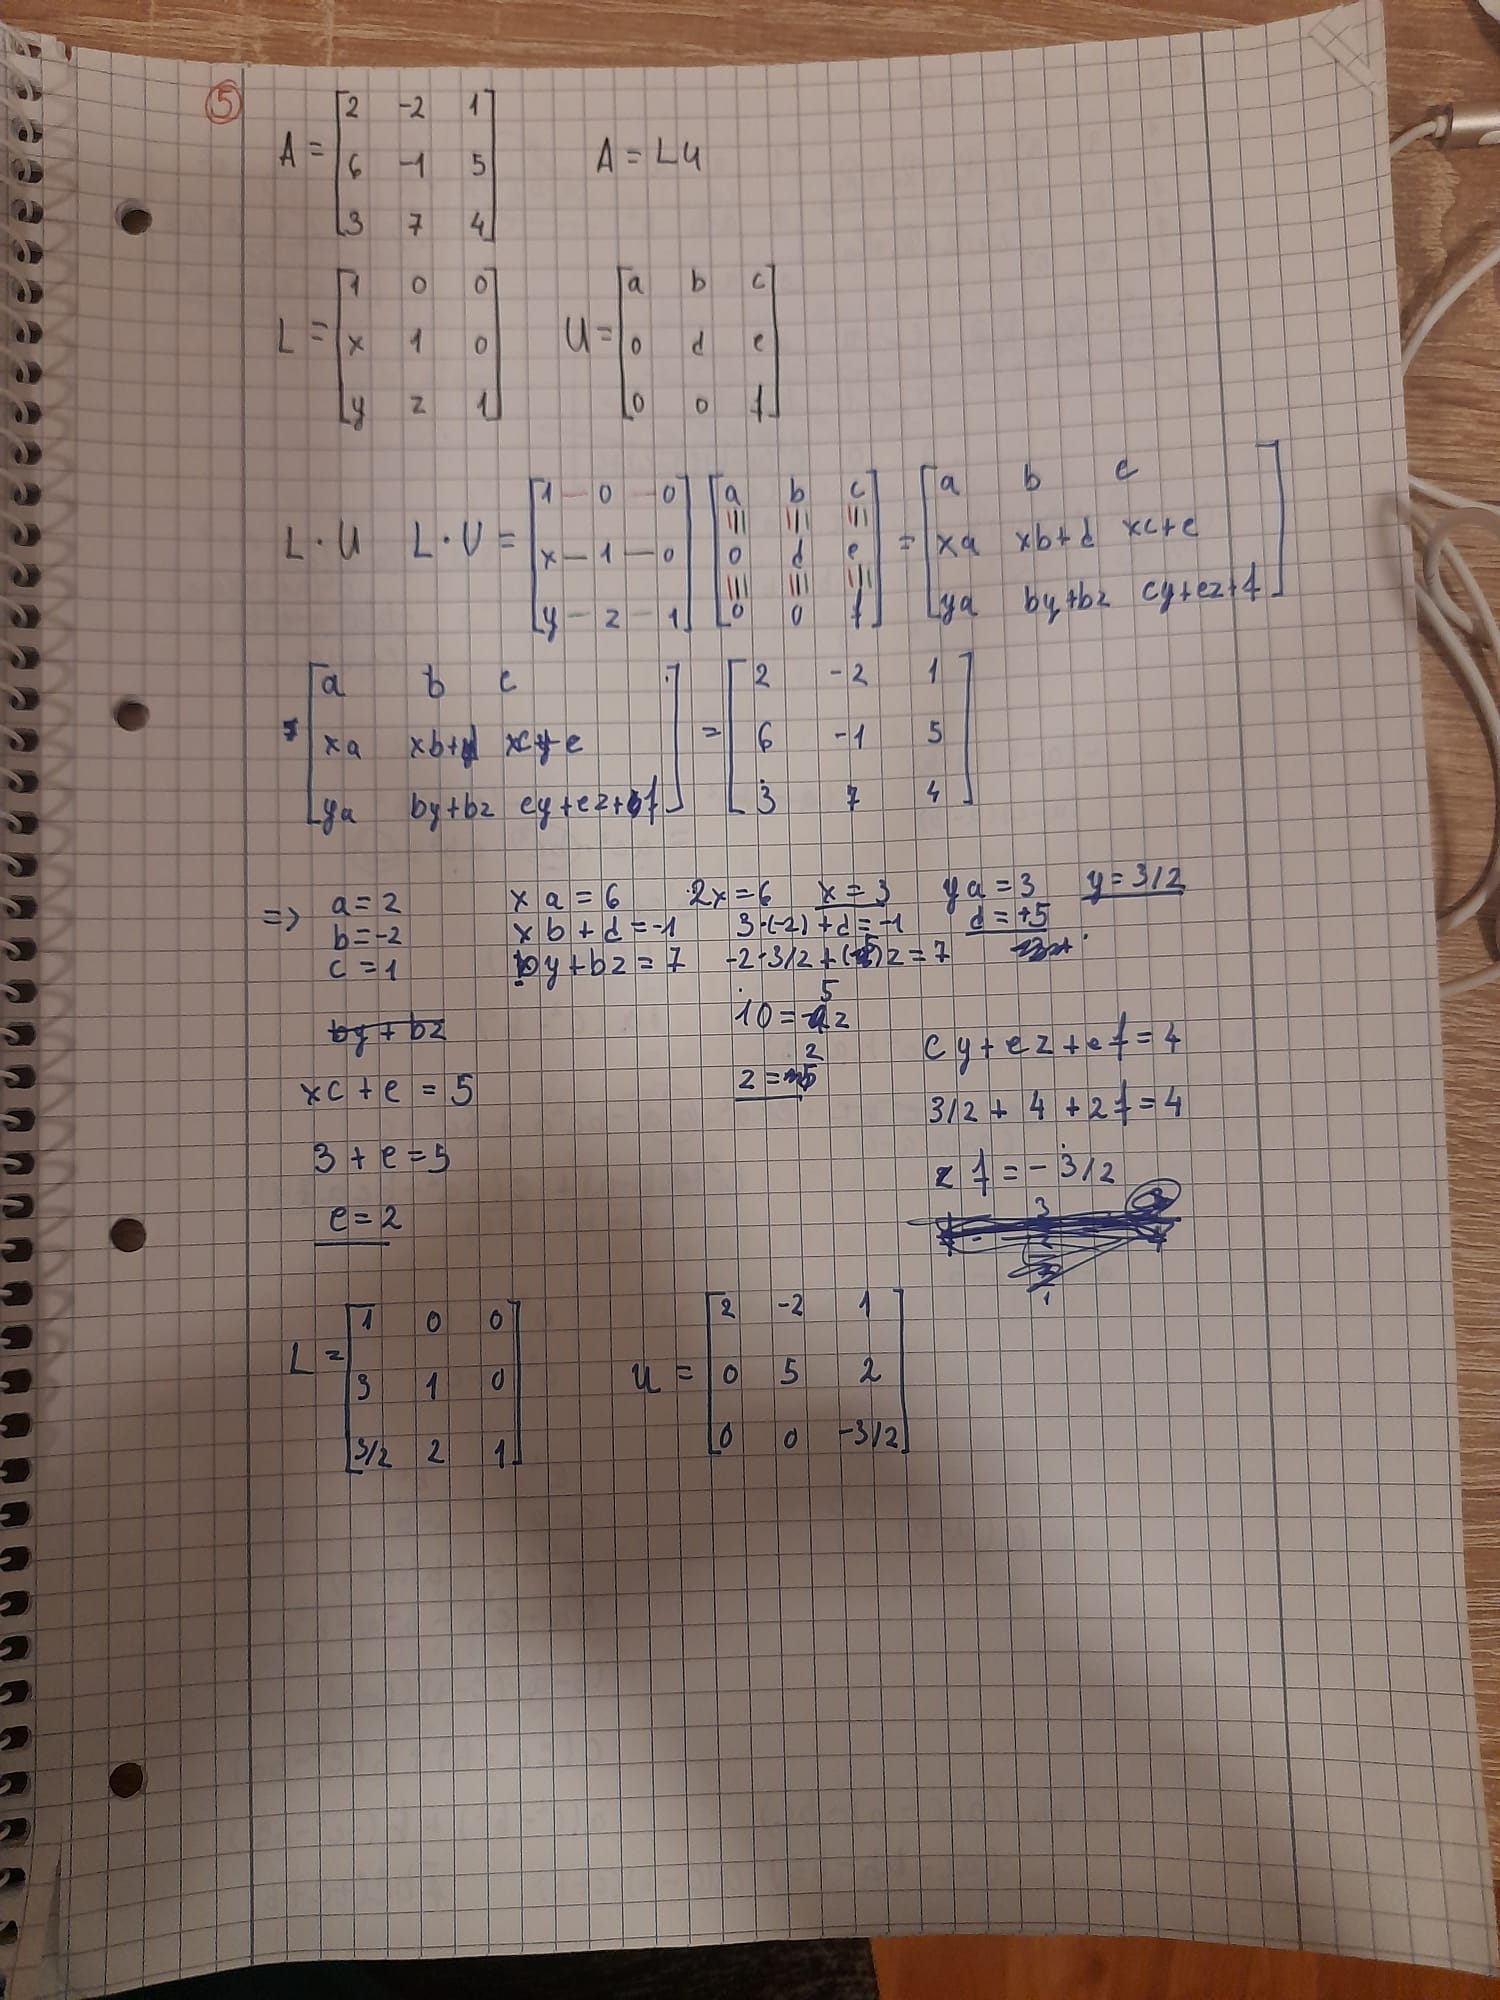 5
A = [2 -2 1
6 -1 5
3 7 4] A = LU
L = [1 0 0
x 1 0
y z 1] U = [a b c
0 d e
0 0 f]
L · U L · U = [1 0 0
x 1 0
y z 1] [a b c
0 d e
0 0 f] = [a b c
xa xb+d xc+e
ya by+bz cy+ez+f]
[a b c
xa xb+d xc+e
ya by+bz cy+ez+f] = [2 -2 1
6 -1 5
3 7 4]
=> a = 2 xa = 6 2x = 6 x = 3 ya = 3 y = 3/2
b = -2 xb + d = -1 3·(-2) + d = -1 d = +5
c = 1 by + bz = 7 -2·3/2 + (5)z = 7
10 = 5z
by + bz
z = 2
cy + ez + ef = 4
xc + e = 5
3/2 + 4 + 2f = 4
3 + e = 5
f = -3/2
e = 2
L = [1 0 0
3 1 0
3/2 2 1] U = [2 -2 1
0 5 2
0 0 -3/2]